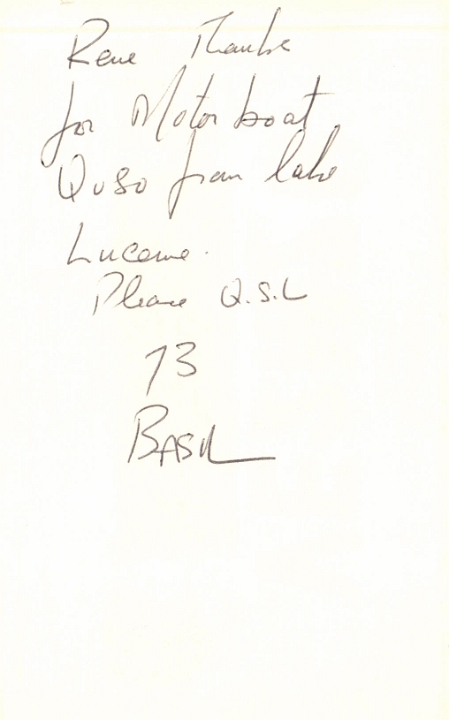 Rene Thanks
for Motor boat
QuSo from lake
Lucerne.
Please Q.S.L
73
BASIL